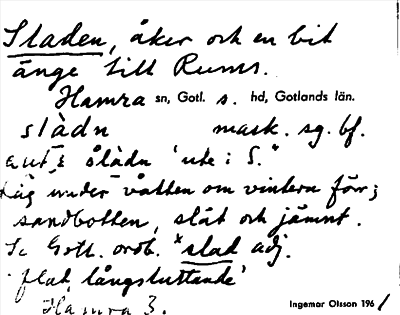 Sladen, åker och en bit
änge till Rums.
Hamra sn, Gotl. s. hd, Gotlands län.
slàdn mask. sg. bf.
slàdn "ute i S."
Låg under vatten om vintern förr;
sandbotten, slät och jämnt.
Se Gotl. ordb. *slad adj.
'flat, långsluttande'
Hamra 3.
Ingemar Olsson 1961